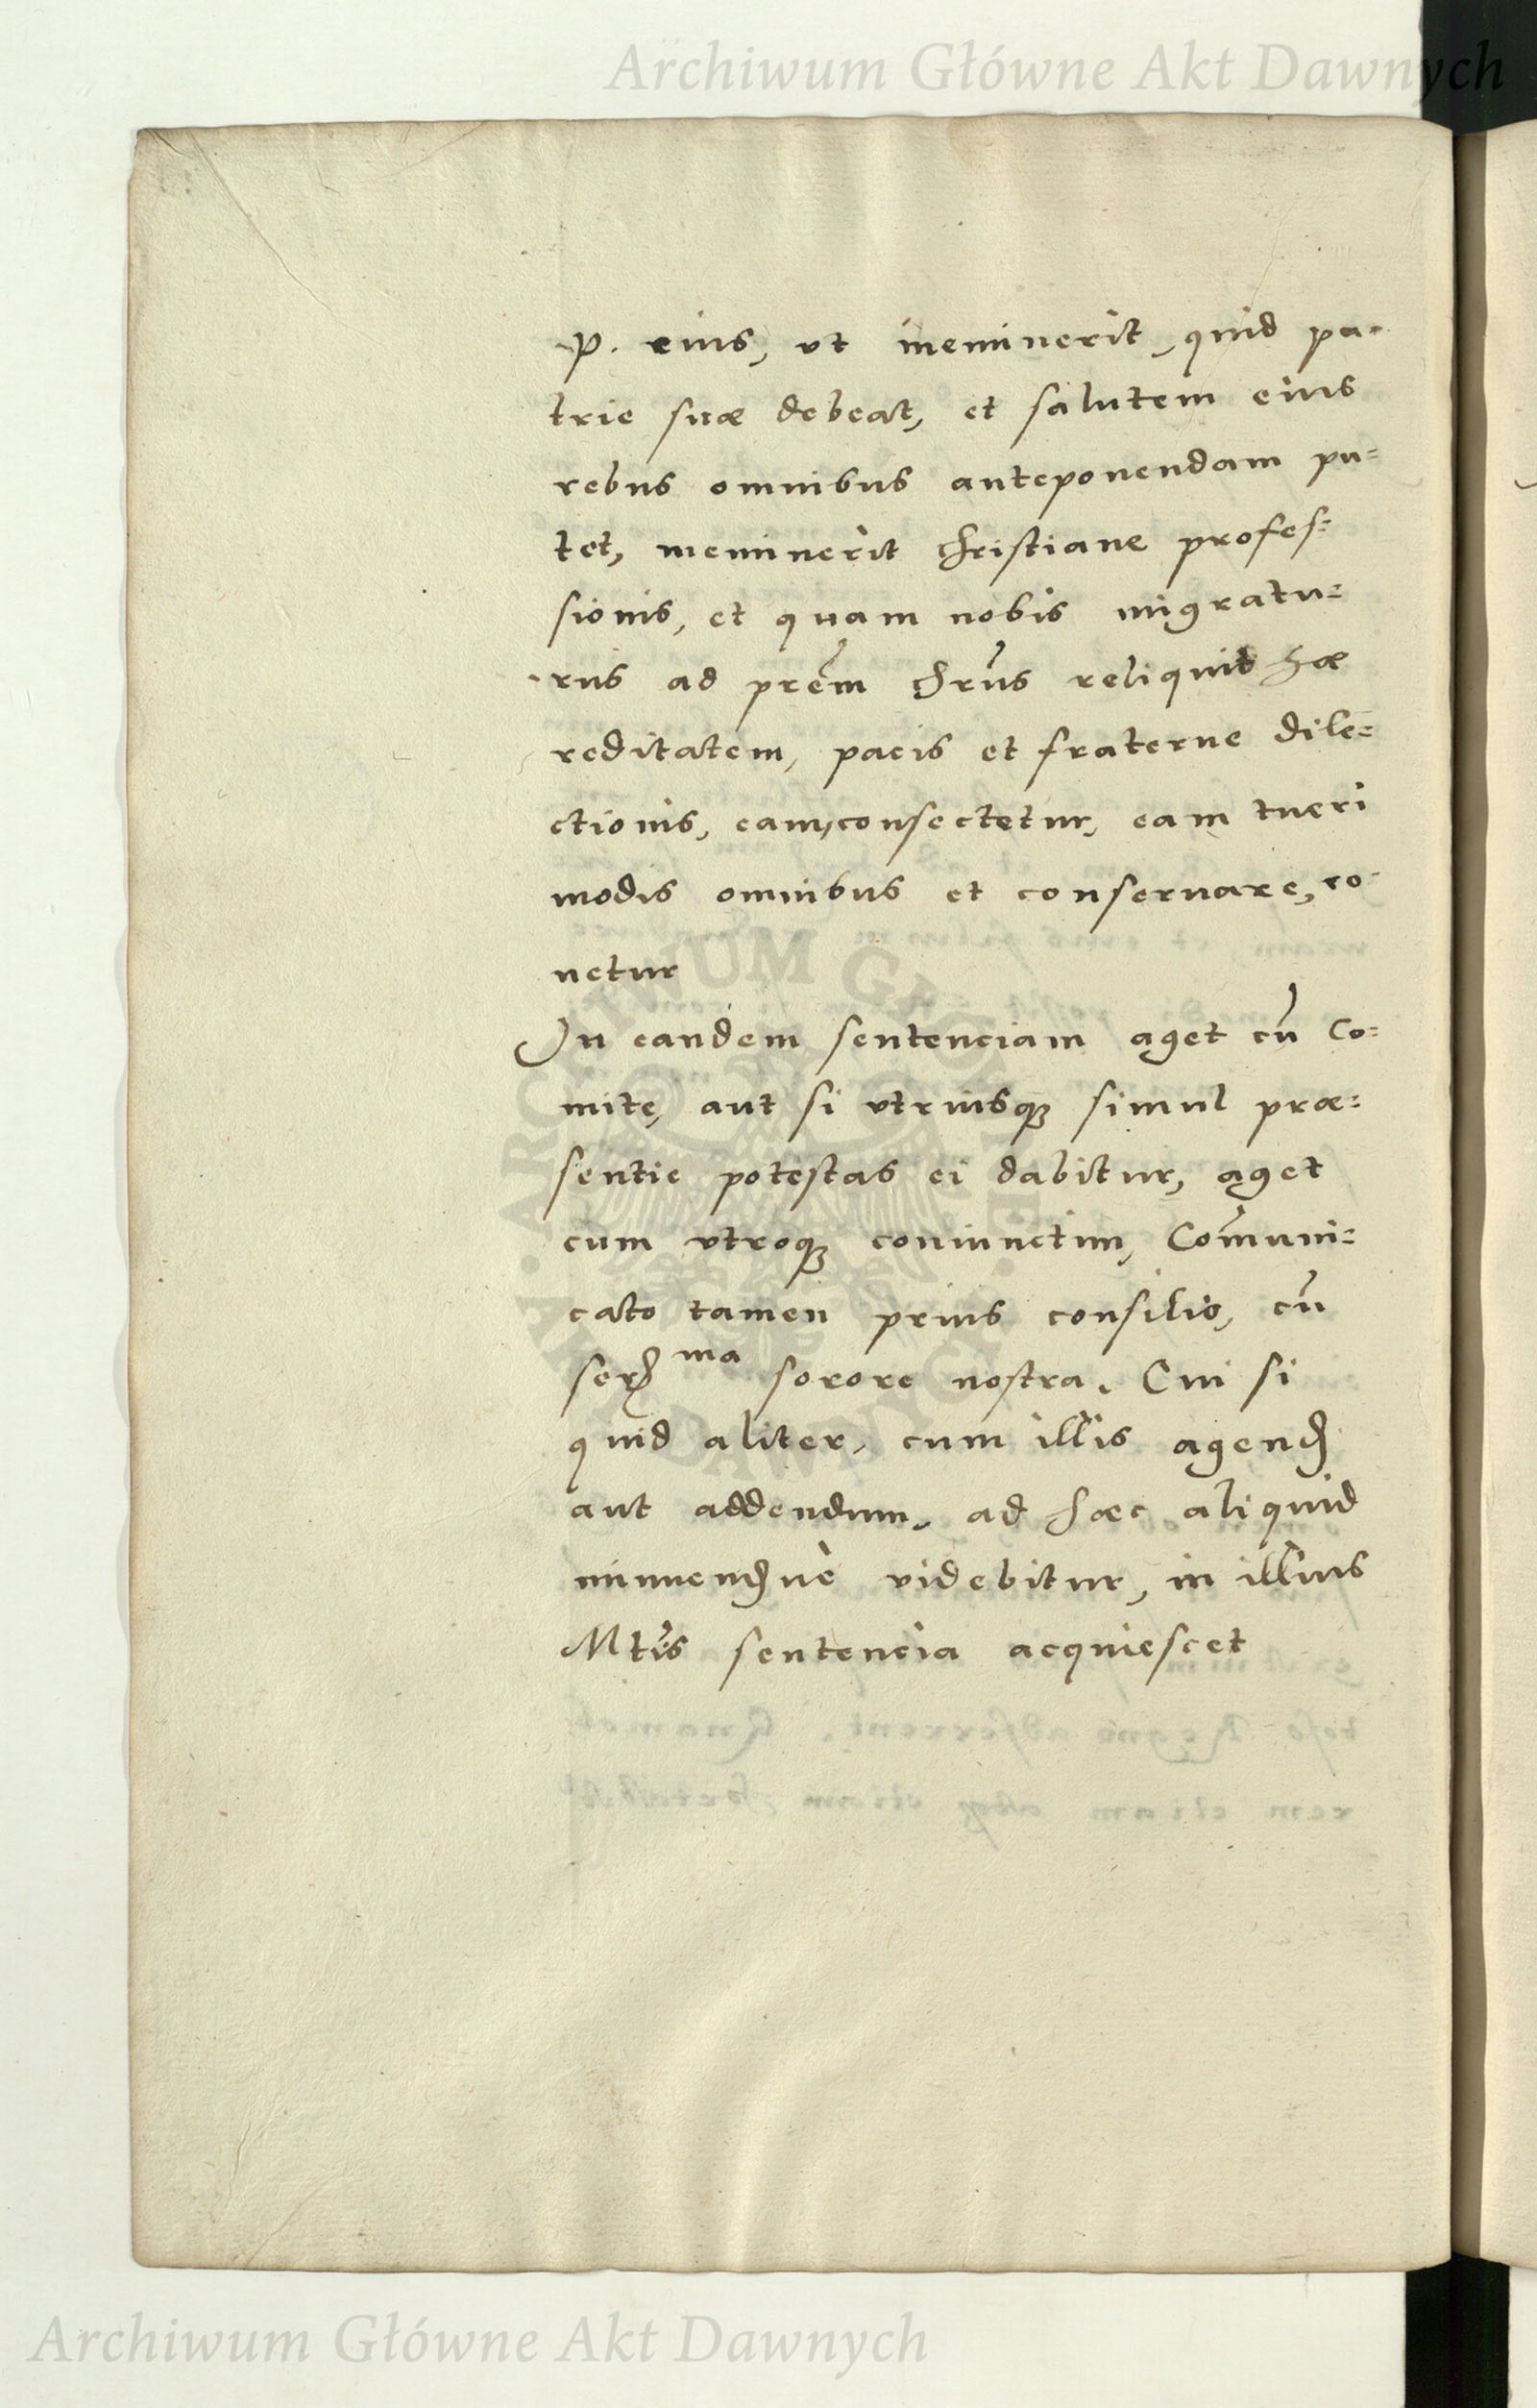 Archiwum Główne Akt Dawnych
p. eius, vt meminerit, quid pa-
trie suæ debeat, et salutem eius
rebus omnibus anteponendam pu=
tet, meminerit christiane profes=
sionis, et quam nobis migratu=
rus ad prẽm chrũs reliquit hæ
reditatem, pacis et fraterne dile=
ctionis, eam consectetur, eam tueri
modis omnibus et conseruare, co-
netur
In eandem sentenciam aget cũ Co=
mite, aut si vtriusqꝫ simul præ=
sentie potestas ei dabitur, aget
cum vtroqꝫ coniunctim, Com̃uni=
cato tamen prius consilio, cũ
serꝭ ma sorore nostra. Cui si
quid aliter, cum illis agendꝭ
aut addendum, ad hæc aliquid
minuendꝭuè videbitur, in illius
Mtis sentencia acquiescet
ARCHIWUM GŁÓWNE AKT DAWNYCH
Archiwum Główne Akt Dawnych